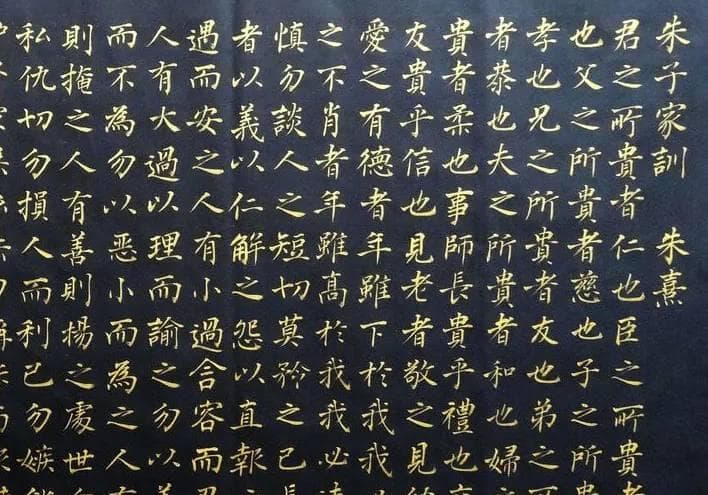 朱子家訓　朱熹
君之所貴者仁也臣之所貴
也父之所貴者慈也子之所
孝也兄之所貴者友也弟之
者恭也夫之所貴者和也婦之
貴者柔也事師長貴乎禮也
友貴乎信也見老者敬之見
愛之有德者年雖下於我我
之不肖者年雖高於我我必
慎勿談人之短切莫矜之己
者以義以仁解之怨以直報
遇而安之人有小過含容而
人有大過以理而諭之勿以
而不為勿以恶小而為之人
則掩之人有善則揚之處世
私仇切勿損人而利己勿嫉